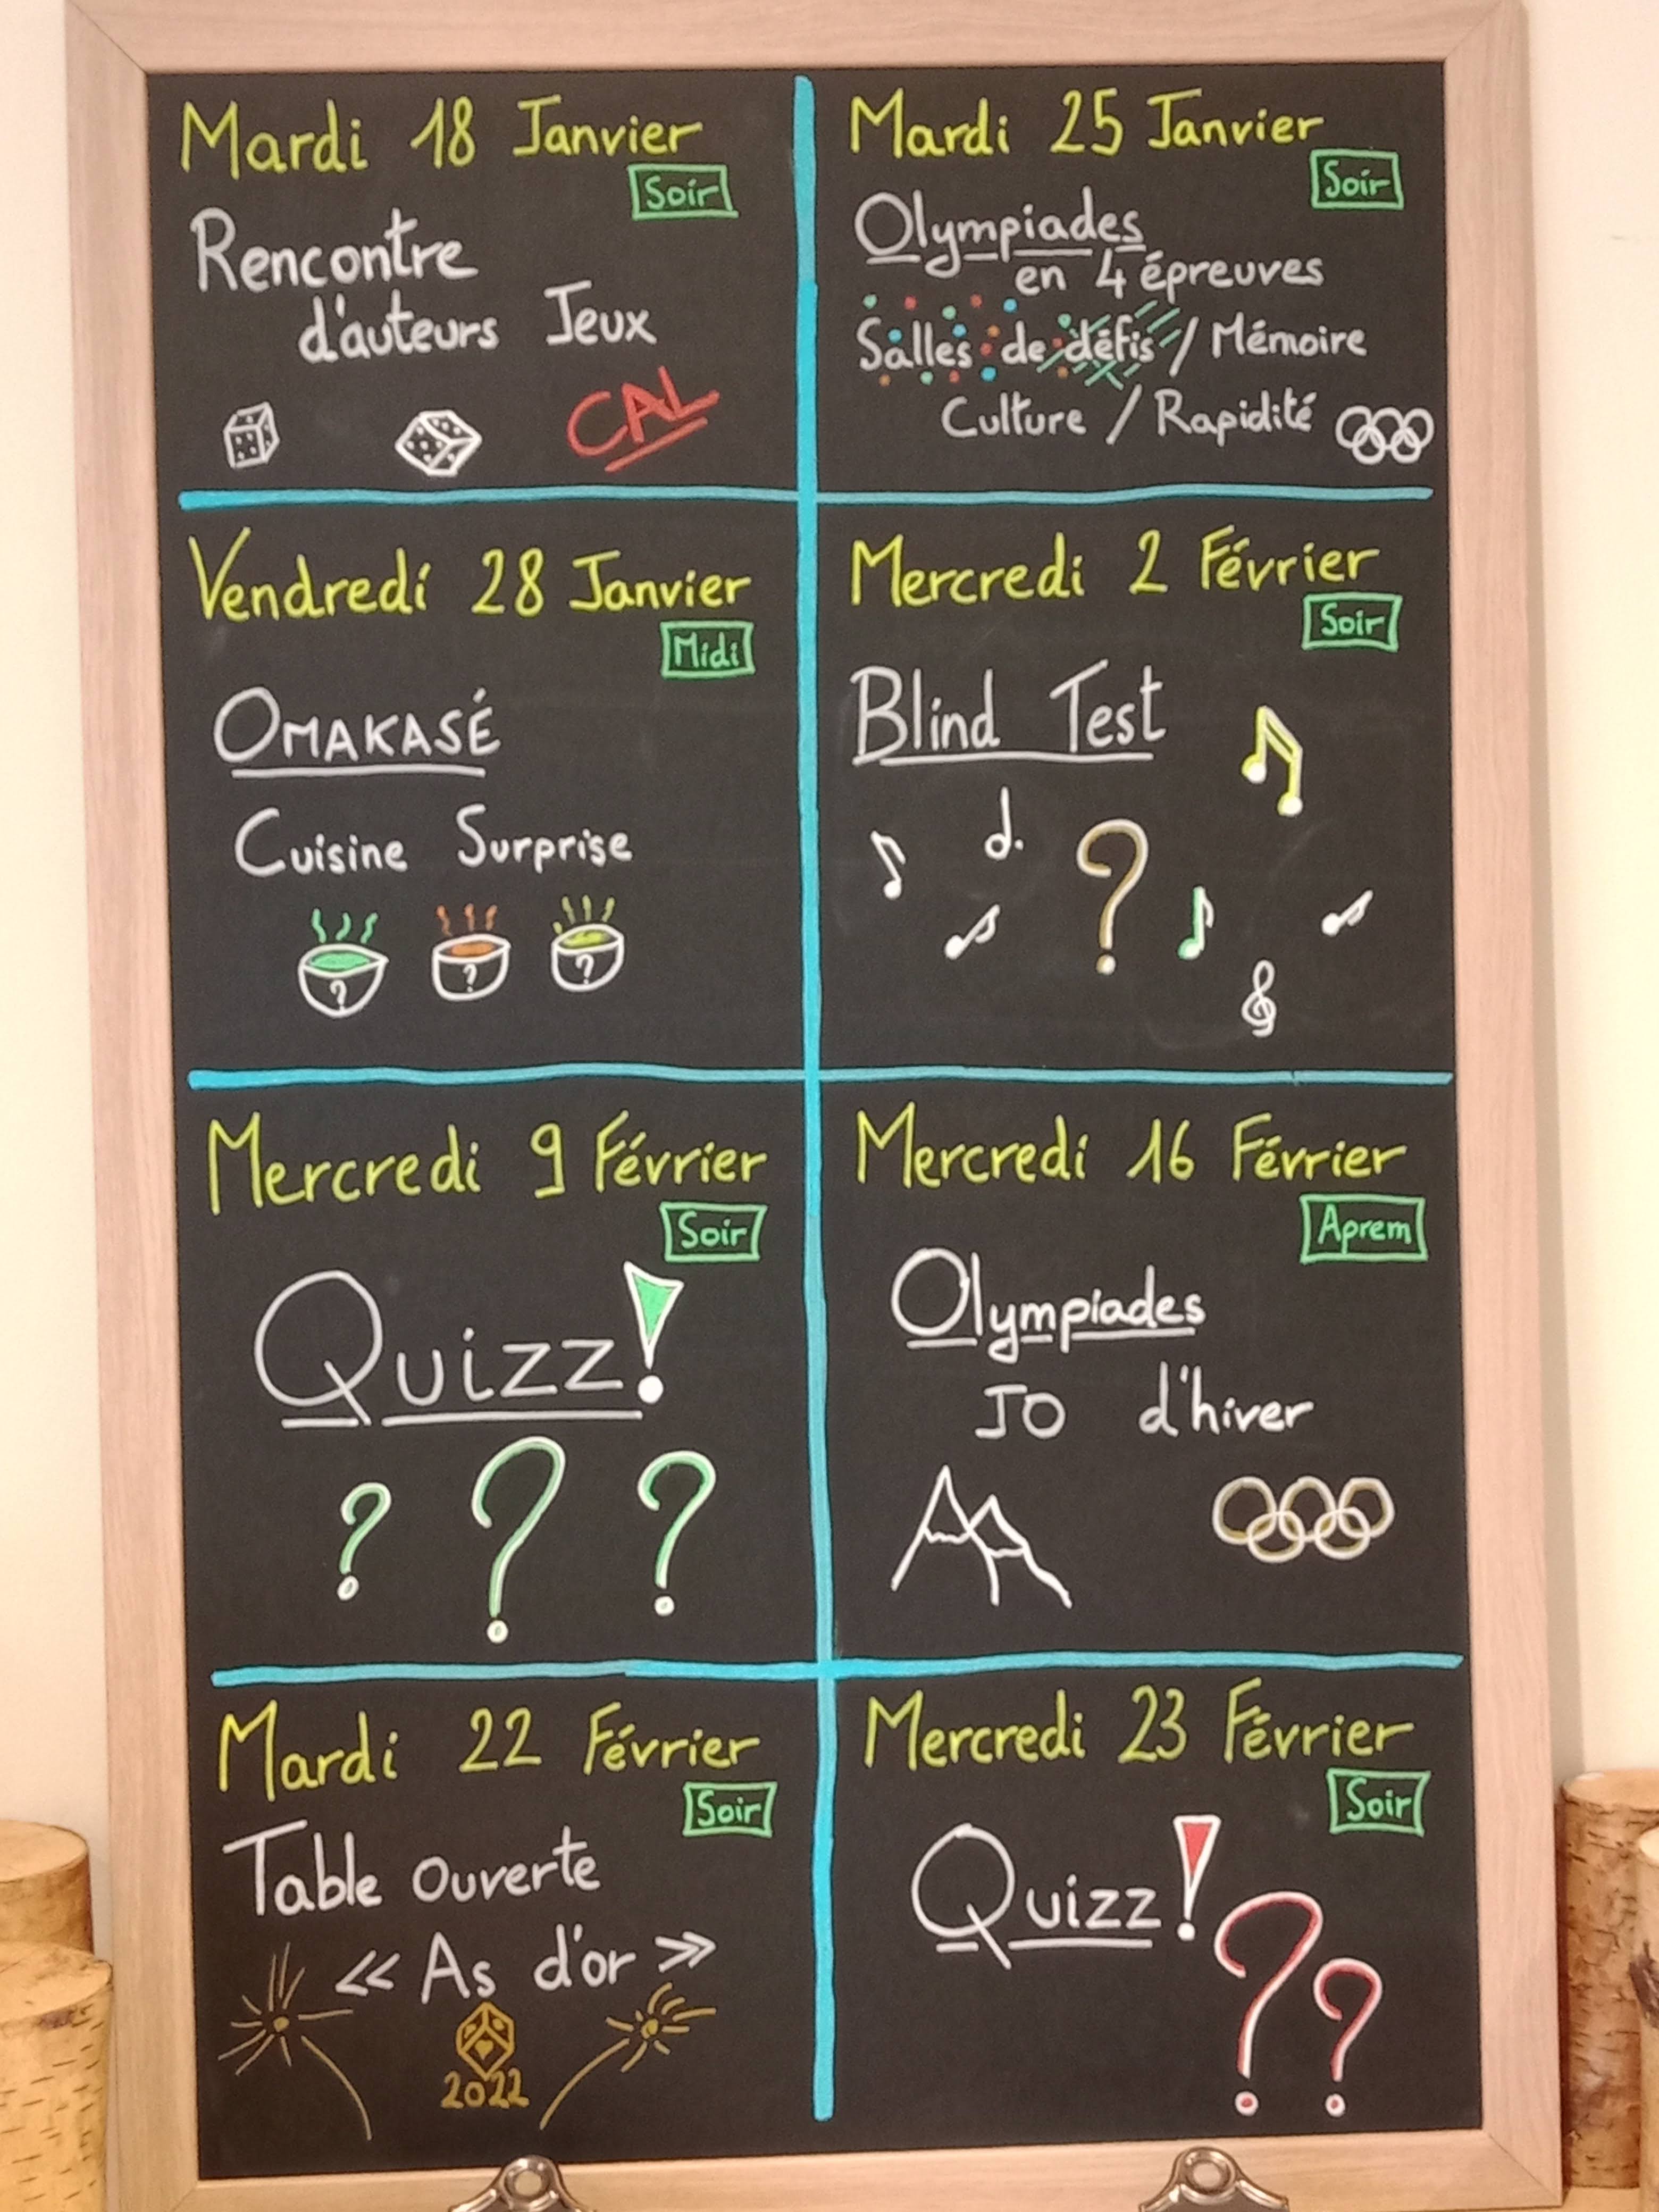 Mardi 18 Janvier
Soir
Rencontre
d'auteurs Jeux
CAL
Mardi 25 Janvier
Soir
Olympiades
en 4 épreuves
Salles de défis / Mémoire
Culture / Rapidité
Vendredi 28 Janvier
Midi
OMAKASÉ
Cuisine Surprise
? ? ?
Mercredi 2 Février
Soir
Blind Test
?
Mercredi 9 Février
Soir
Quizz!
? ? ?
Mercredi 16 Février
Aprem
Olympiades
JO d'hiver
Mardi 22 Février
Soir
Table ouverte
<< As d'or >>
2022
Mercredi 23 Février
Soir
Quizz!
? ?